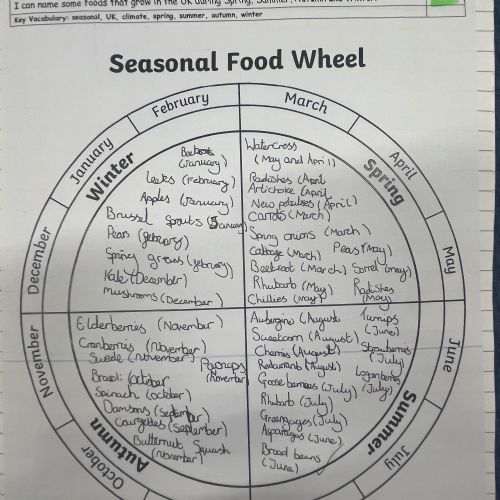 I can name some foods that grow in the UK during Spring, Summer, Autumn and Winter.
Key Vocabulary: seasonal, UK, climate, spring, summer, autumn, winter
Seasonal Food Wheel
February
March
January
April
December
May
November
June
October
July
Winter
(January)
Leeks (February)
Apples (January)
Brussel Sprouts (January)
Pears (february)
Spring greens (february)
Kale (December)
mushrooms (December)
Spring
Watercress
(May and April)
Radishes (April
Artichoke (April
New potatoes (April)
Carrots (March)
Spring onions (March)
Cabbage (March) Peas (May)
Beetroot (March) Sorrel (may)
Rhubarb (May) Radishes
Chillies (may) (May)
Autumn
Elderberries (November)
Cranberries (November)
Suede (November) Parsnips
(November)
(October
Spinach (october)
Damsons (September)
Courgettes (September)
Butternut Squash
(november)
Summer
Aubergine (August Turnips
(June)
Sweetcorn (August)
Cherries (August) Strawberries
(July)
(August)
Gooseberries (July) Loganberries
(July)
Rhubarb (July)
Greengages (July)
Asparagus (June)
Broad beans
(June)